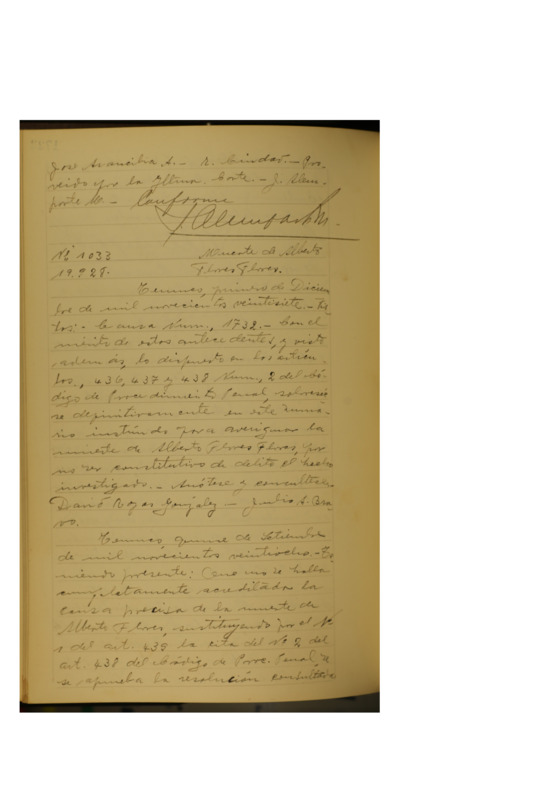 José Arancibia A. — R. Cindar. — Pro-
veido por la Iltma. Corte. — J. Alem-
parte M. — Conforme
J. Alemparte M.
Nº 1033 Muerte de Alberto
19.928. Flores Flores.
Temuco, primero de Diciem-
bre de mil novecientos veintisiete. — Vis-
tos: — Causa Num., 1732. — Con el
mérito de estos antecedentes, y visto
además, lo dispuesto en los artícu-
los, 436, 437 y 438 Num., 2 del Có-
digo de Procedimiento Penal, sobresée-
se definitivamente en este suma-
rio instruido para averiguar la
muerte de Alberto Flores Flores, por
no ser constitutivo de delito el hecho
investigado. — Anótese y consúltese.
Darió Rojas González — Julio A. Bra-
vo.
Temuco, quince de Setiembre
de mil novecientos veintiocho. — Te-
niendo presente: Que no se halla
completamente acreditada la
causa precisa de la muerte de
Alberto Flores, sustituyendo por el Nº
1 del art. 439 la cita del Nº 2 del
art. 438 del Código de Proc. Penal,
se aprueba la resolución consultada